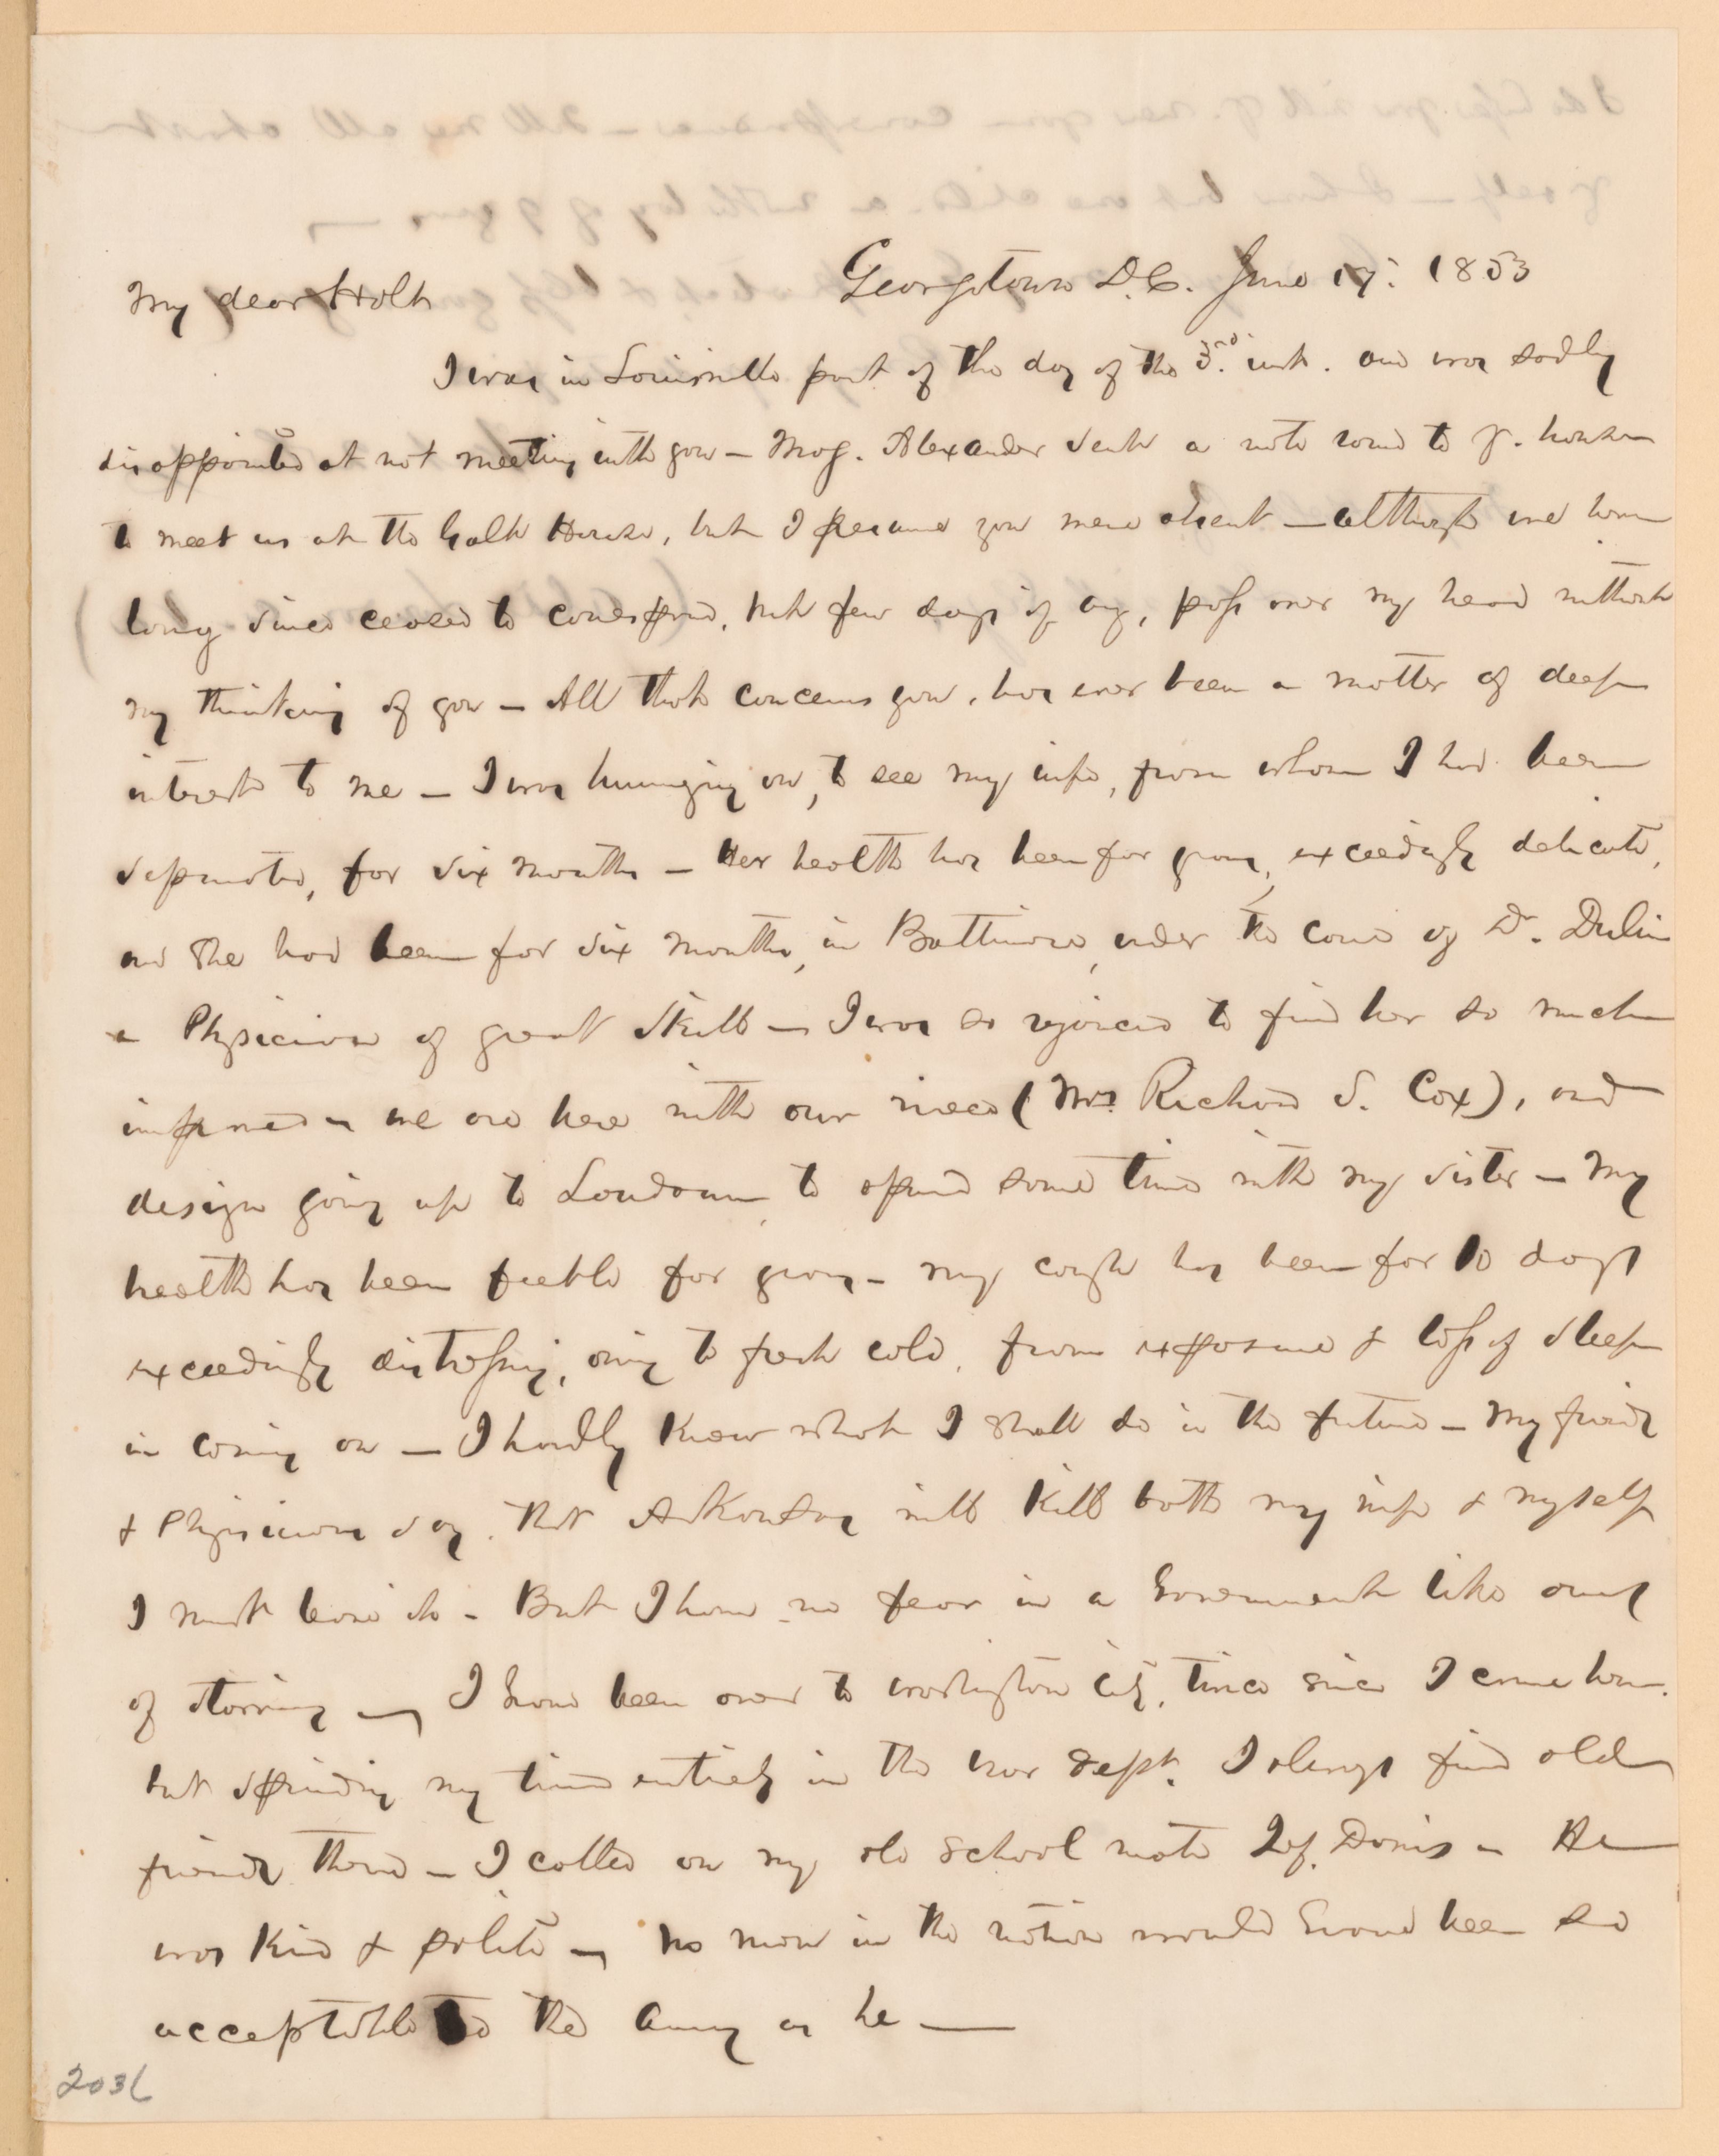 Georgetown D.C. June 17. 1853
My dear Holt
I was in Louisville part of the day of the 3rd. inst. and was sadly
disappointed at not meeting with you – Maj. Alexander sent a note round to yr. house
to meet us at the Galt House, but I presume you were absent – although we have
long since ceased to correspond, but few days if any, pass over my head without
my thinking of you – All that concerns you, has ever been a matter of deep
interest to me – I was hurrying on, to see my wife, from whom I had been
separated, for six months – Her health has been for years, exceedingly delicate,
and she had been for six months, in Baltimore, under the care of Dr. Dulin
a Physician of great skill – I was so rejoiced to find her so much
improved – we are here with our niece (Mrs. Richard S. Cox), and
design going up to Loudoun, to spend some time with my sister – My
health has been feeble for years – my cough has been for 10 days
exceedingly distressing, owing to fresh cold, from exposure & loss of sleep
in coming on – I hardly know what I shall do in the future – My friends
& Physicians say, that Arkansas will kill both my wife & myself
I must leave it – But I have no fear in a Government like ours
of starving – I have been over to Washington City, twice since I came here.
but spending my time entirely in the War Dept. I always find old
friends there – I called on my old school mate Jef. Davis – He
was kind & polite – No man in the nation would have been so
acceptable to the Army as he —